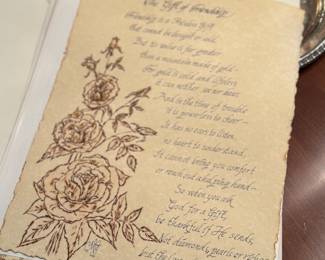 The Gift of Friendship
Friendship is a Priceless Gift
that cannot be bought or sold,
But its value is far greater
than a mountain made of gold -
For gold is cold and lifeless
it can neither see nor hear
And in the time of trouble
it is powerless to cheer -
It has no ears to listen,
no heart to understand,
It cannot bring you comfort
or reach out a helping hand -
So when you ask
God for a Gift,
be thankful if He sends,
Not diamonds, pearls or riches
but the